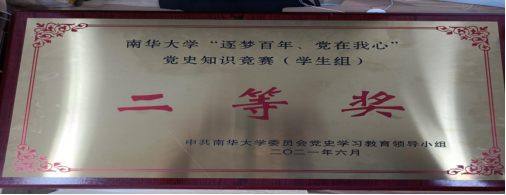 南华大学“逐梦百年、党在我心”
党史知识竞赛（学生组）
二等奖
中共南华大学委员会党史学习教育领导小组
二〇二一年六月